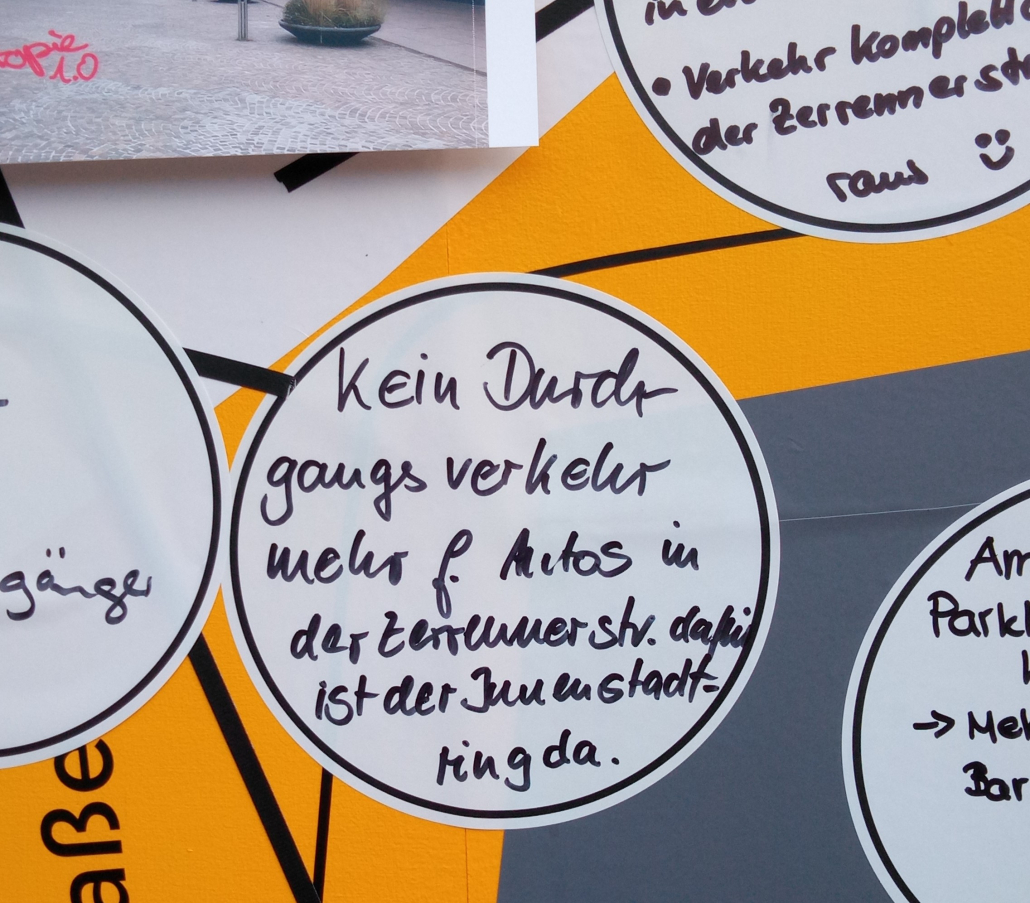 opie
1.0
in ein
• Verkehr komplett
der Zerrennerstr
raus
gänger
Kein Durch-
gangsverkehr
mehr f. Autos in
der Zerrennerstr. dafür
ist der Innenstadt-
ring da.
Am
Park
→ Meh
Bar
aße